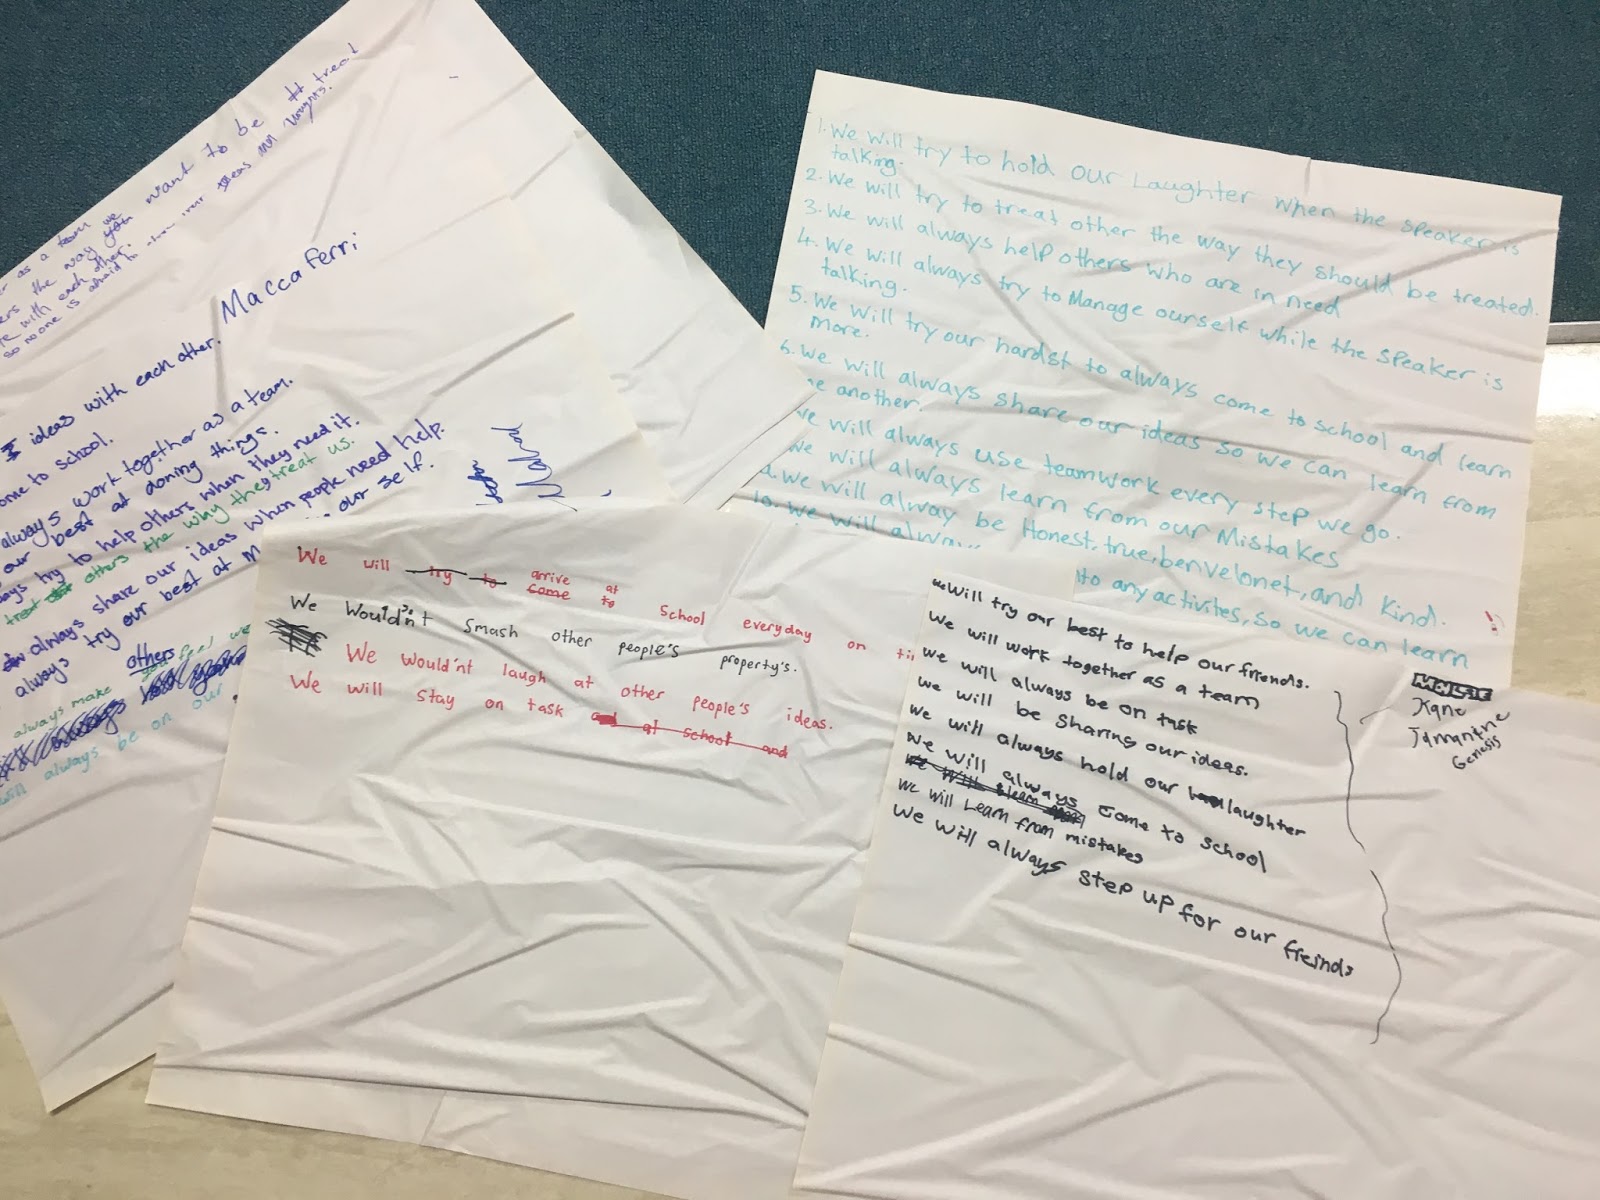 as a team we want to be # treat
ers the way you
with each other. our ideas and thoughts.
so no one is afraid to
Maccaferri
ideas with each other.
ome to school.
always work together as a team.
our best at doning things.
ays try to help others when they need it.
treat others the why they treat us.
always share our ideas when people need help.
always try our best at M our self.
others
always make you feel we
always be on our
1. We will try to hold our Laughter when the speaker is
talking.
2. We will try to treat other the way they should be treated.
3. We will always help others who are in need
4. We will always try to Manage ourself while the speaker is
talking.
5. We will try our hardst to always come to school and learn
more.
6. We will always share our ideas so we can learn from
e another.
we will always use teamwork every step we go.
We will always learn from our Mistakes
We will alway be Honest, true, benvelonet, and kind.
10. We will alway
to any activites, so we can learn
We will try to arrive come at to school everyday on ti
We Would'nt smash other people's property's.
We would'nt laugh at other people's ideas.
We will stay on task at school and
we will try our best to help our friends.
We will work together as a team
we will always be on task
we will be sharing our ideas.
we will always hold our laughter
we will always come to school
we will learn
we will Learn from mistakes
we will always step up for our freinds
Kane
Jamantne
Genesis